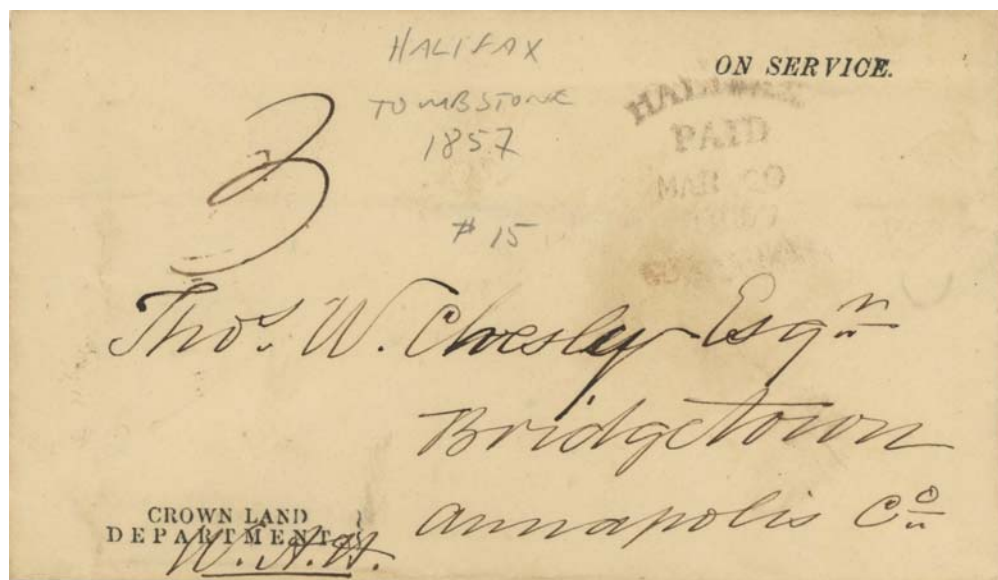 HALIFAX
TOMBSTONE
1857
# 15
ON SERVICE.
HALIFAX
PAID
MAR 20
1857
3
Thos. W. Chesley Esqr
Bridgetown
Annapolis Co
CROWN LAND
DEPARTMENT
W. A. H.